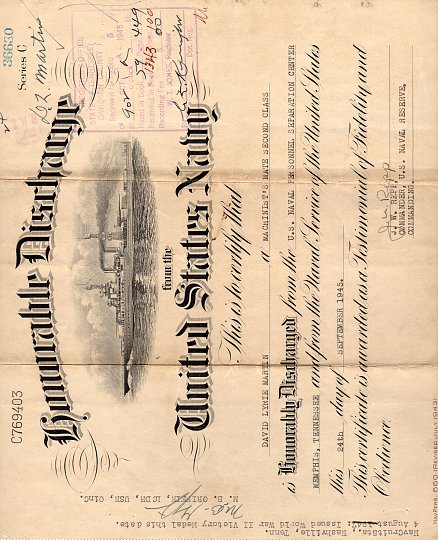 36630
Series C
D. L. Martin
C769403
Honorable Discharge
from the
United States Navy
This is to certify That
DAVID LYRIE MARTIN a MACHINIST'S MATE SECOND CLASS
is Honorably Discharged from the U.S. NAVAL PERSONNEL SEPARATION CENTER
MEMPHIS, TENNESSEE and from the Naval Service of the United States
this 24th day of SEPTEMBER 1945.
This certificate is awarded as a Testimonial of Fidelity and
Obedience.
J W Repp
J. W. REPP,
COMMANDER, U.S. NAVAL RESERVE,
COMMANDING.
NavCruitSta, Nashville, Tenn.
4 August 1947: Issued World War II Victory Medal this date.
LCDR, USN, OinC.